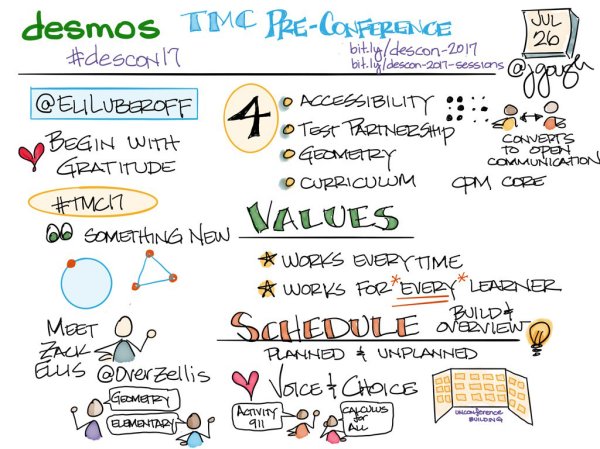 desmos TMC PRE-CONFERENCE
#descon17
bit.ly/descon-2017
bit.ly/descon-2017-sessions
JUL
26
@jgough
@ELILUBEROFF
BEGIN WITH
GRATITUDE
#TMC17
SOMETHING NEW
MEET
ZACK
ELLIS @OverZellis
GEOMETRY
ELEMENTARY
4
ACCESSIBILITY
TEST PARTNERSHIP
GEOMETRY
CURRICULUM CPM CORE
CONVERTS
TO OPEN
COMMUNICATION
VALUES
WORKS EVERYTIME
WORKS FOR *EVERY* LEARNER
SCHEDULE
BUILD &
OVERVIEW
PLANNED & UNPLANNED
VOICE & CHOICE
ACTIVITY
911
CALCULUS
for
ALL
UNCONFERENCE
BUILDING